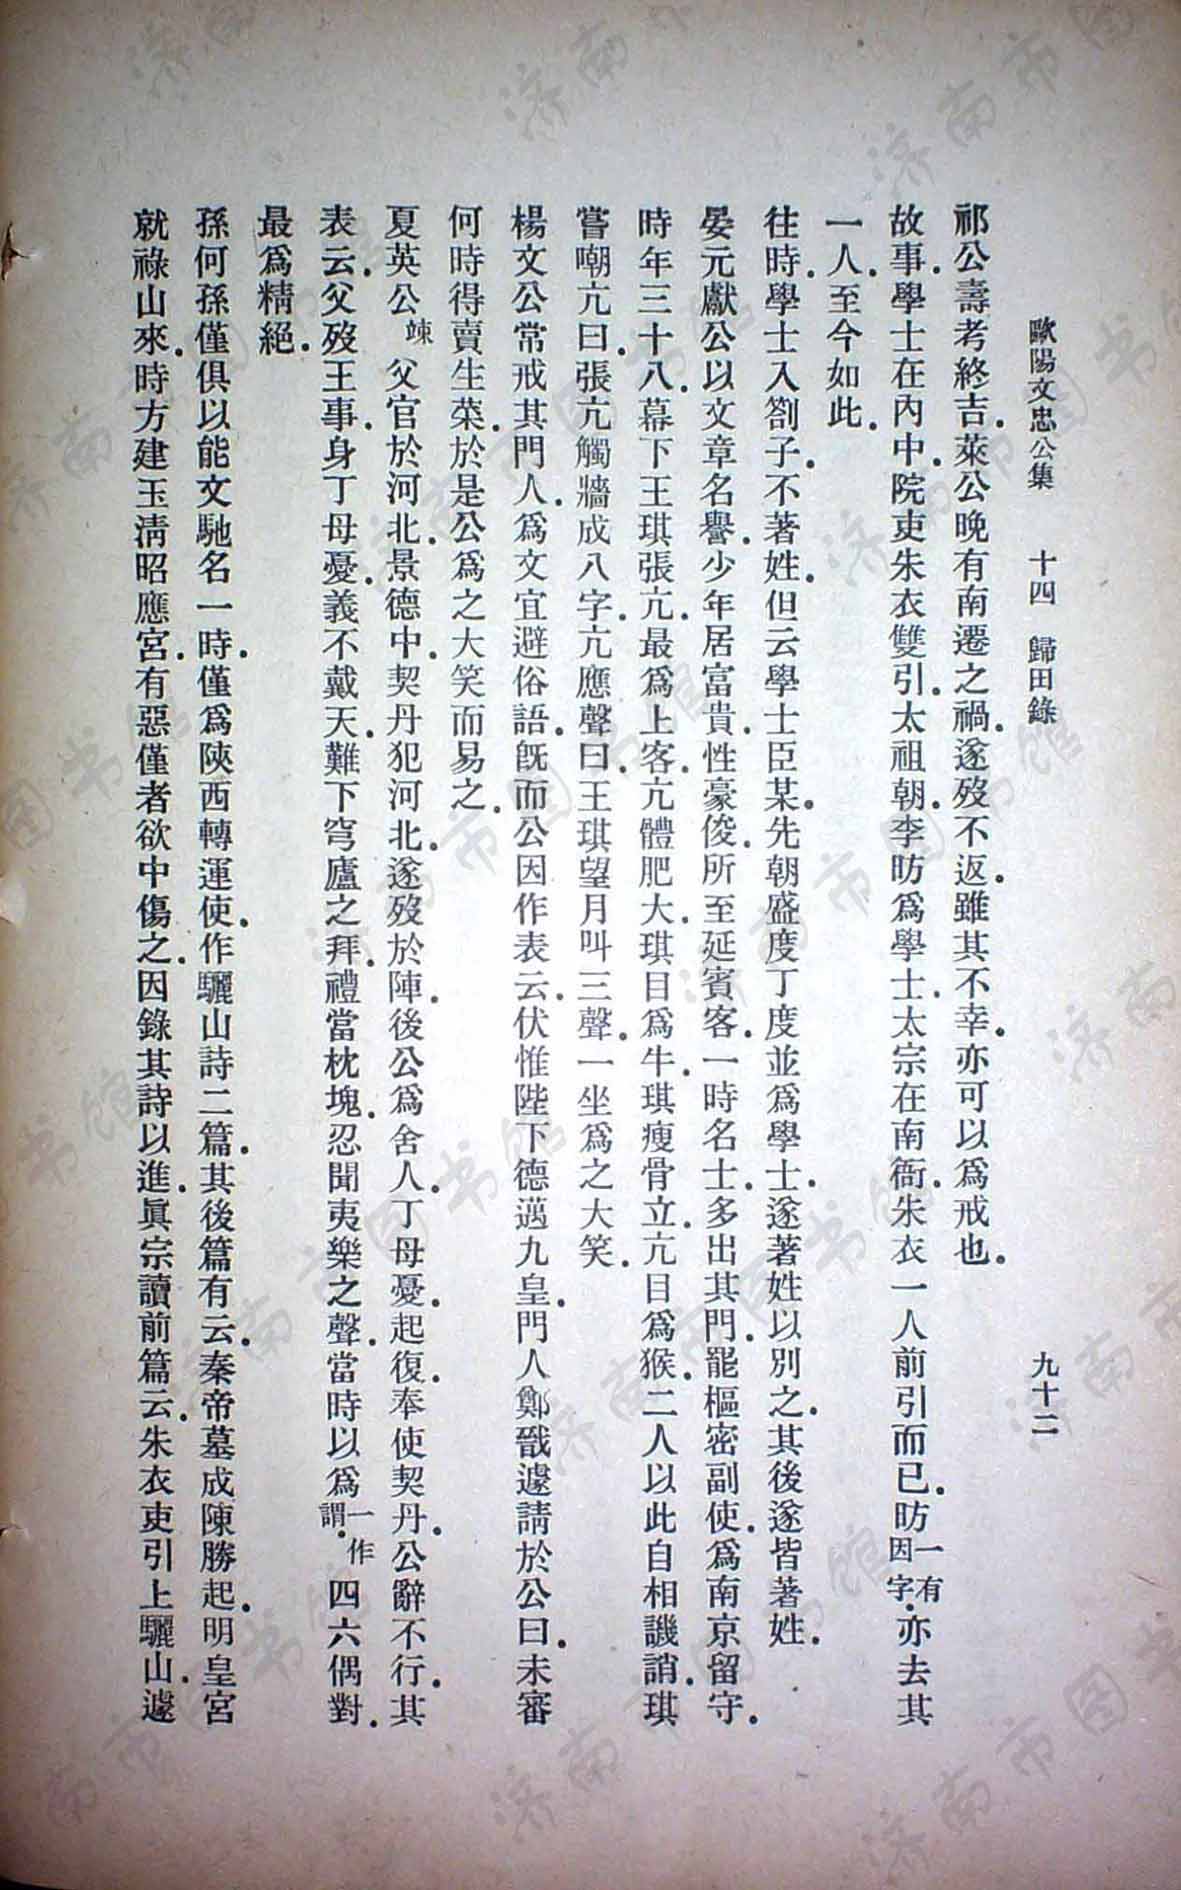 歐陽文忠公集 十四 歸田錄 九十二
祁公壽考終吉．萊公晚有南遷之禍．遂歿不返．雖其不幸．亦可以爲戒也．
故事．學士在內中．院吏朱衣雙引．太祖朝．李昉爲學士．太宗在南衙．朱衣一人前引而已．昉一有因字．亦去其
一人．至今如此．
往時．學士入劄子．不著姓．但云學士臣某．先朝盛度丁度並爲學士．遂著姓以別之．其後遂皆著姓．
晏元獻公以文章名譽．少年居富貴．性豪俊．所至延賓客．一時名士．多出其門．罷樞密副使．爲南京留守．
時年三十八．幕下王琪張亢．最爲上客．亢體肥大．琪目爲牛．琪瘦骨立．亢目爲猴．二人以此自相譏誚．琪
嘗嘲亢曰．張亢觸牆成八字．亢應聲曰．王琪望月叫三聲．一坐爲之大笑．
楊文公常戒其門人．爲文宜避俗語．旣而公因作表云．伏惟陛下德邁九皇．門人鄭戩遽請於公曰．未審
何時得賣生菜．於是公爲之大笑而易之．
夏英公竦父官於河北．景德中．契丹犯河北．遂歿於陣．後公爲舍人．丁母憂．起復．奉使契丹．公辭不行．其
表云．父歿王事．身丁母憂．義不戴天．難下穹廬之拜．禮當枕塊．忍聞夷樂之聲．當時以爲一作謂．四六偶對．
最爲精絕．
孫何孫僅俱以能文馳名一時．僅爲陝西轉運使．作驪山詩二篇．其後篇有云．秦帝墓成陳勝起．明皇宮
就祿山來．時方建玉淸昭應宮．有惡僅者欲中傷之．因錄其詩以進．眞宗讀前篇云．朱衣吏引上驪山．遽
济南市图书馆